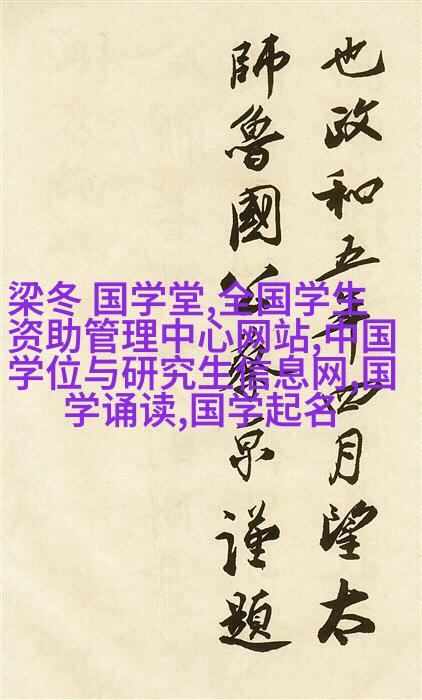 也政和五年四月望太
師魯國公蔡京謹題
梁冬 国学堂,全国学生
资助管理中心网站,中国
学位与研究生信息网,国
学诵读,国学起名